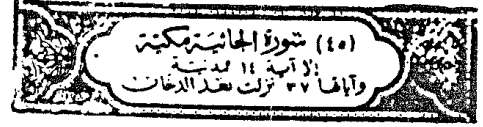 (٤٥) سورة الجاثية مكية
إلا آية ١٤ فمدنية
وآياتها ٣٧ نزلت بعد الدخان